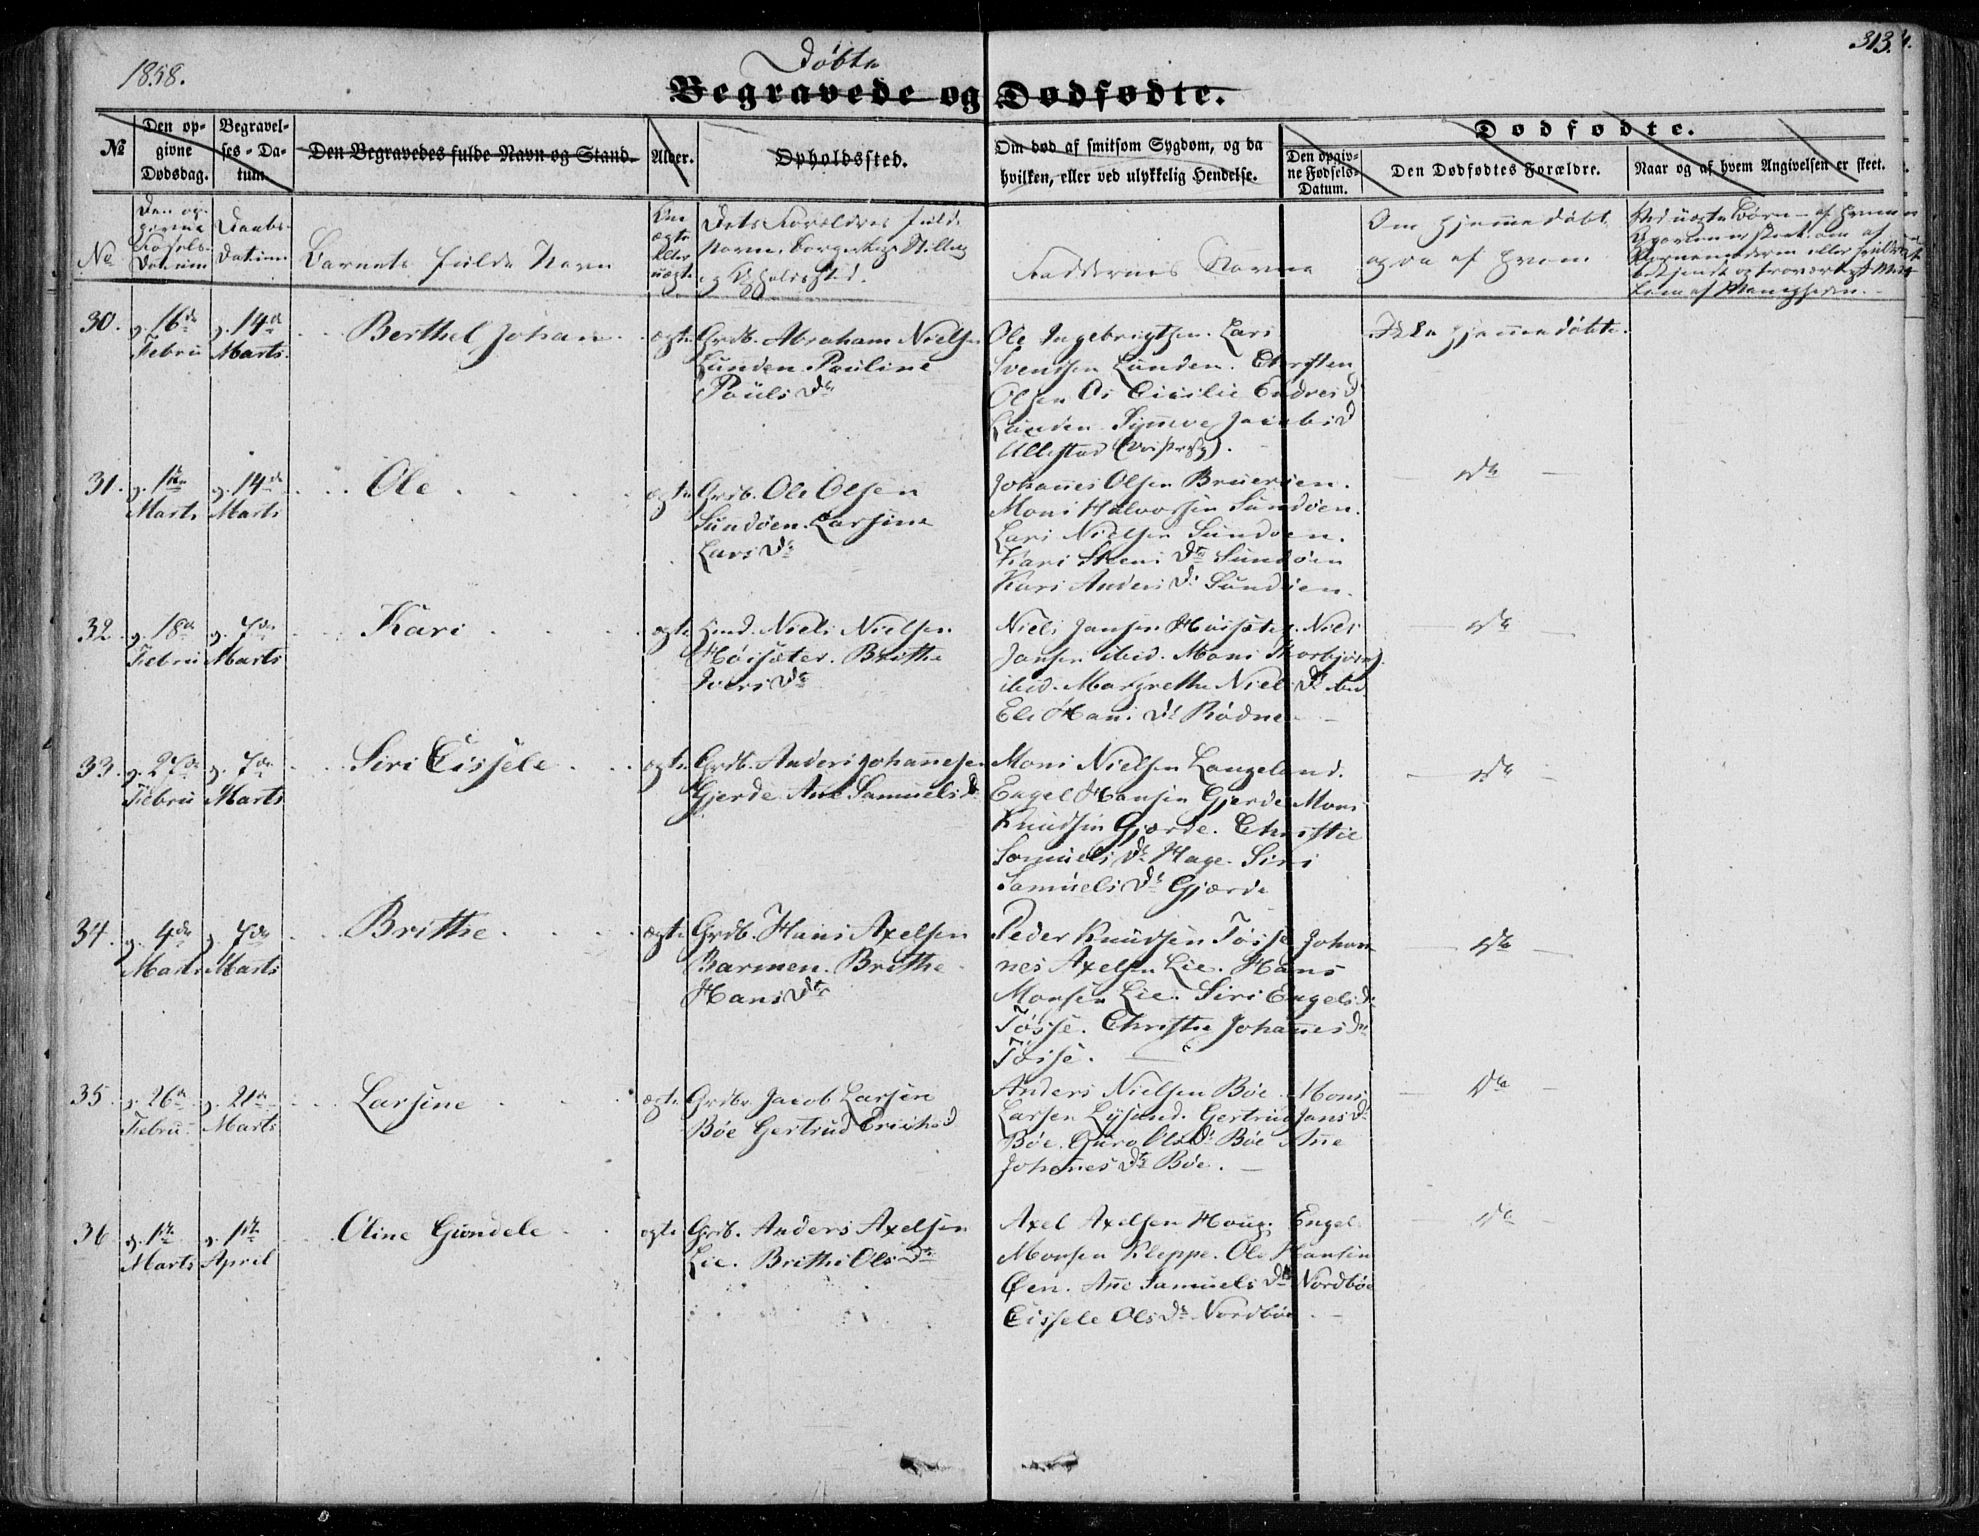 1858.
Døbte
313.
Begravede og Dødfødte.
№
Den op-
givne
Dødsdag.
Begravel-
ses-Da-
tum.
Den Begravedes fulde Navn og Stand.
Alder.
Opholdssted.
Om død af smitsom Sygdom, og da
hvilken, eller ved ulykkelig Hendelse.
Dødfødte.
Den opgiv-
ne Fødsels-
Datum.
Den Dødfødtes Forældre.
Naar og af hvem Angivelsen er skeet.
No
Den op-
givne
Fødsels-
Datum
Daabs-
Datum
Barnets fulde Navn
Om
ægte
eller
uægte
Dets Forældres fulde
Navne, Borgerlige Stilling
og Opholdssted.
Faddernes Navne
Om hjemmedøbt
og da af hvem
Ved uægte Børn – af hvem
30.
g. 16de
Febru
g. 14de
Marts.
Berthel Johan
ægte
Grdb. Abraham Nielsen
Lunden. Pauline
Pouls Dr
Ole Ingebrigtsen. Lars
Svendsen Lunden. Christen
Olsen Os Cicilie Endresd
Lunden Synneve Jacobsd
Ullestad
Ikke hjemmedøbte.
31.
g. 1ste
Marts
g. 14de
Marts
Ole
ægte
Grdb. Ole Olsen
Sundøen. Larsine
Lars Dr
Johannes Olsen Bruerøen.
Mons Halvorsen Sundøen.
Lars Nielsen Sundøen.
Kari Steens Dr Sundøen
Kari Anders Dr Sundøen.
Do
32
g. 18de
Febru
g. 7de
Marts
Kari
ægte
Niels Nielsen
Høisæter. Brithe
Ivers Dr
Niels Jansen Høisæter. Niels
Jansen ibid. Mons Thorbjørns.
ibid. Margrethe Niels Dr ibid
Eli Hans Dr Rødne
Do
33.
g. 27de
Febru
g. 7de
Marts
Siri Cissele
ægte
Grdb. Anders Johannesen
Gjerde Ane Samuels Dr
Mons Nielsen Langeland.
Engel Hansen Gjerde Mons
Knudsen Gjerde. Christie
Samuels Dr Hage. Siri
Samuels Dr Gjærde
Do
34.
g. 4de
Marts
g. 7de
Marts
Brithe
ægte
Grdb. Hans Axelsen
Barmen. Brithe
Hans Dr
Peder Knudsen Tøsse Johan-
nes Axelsen Lie. Hans
Monsen Lie. Siri Engels Dr
Tøsse. Christie Johannes Dr
Tøsse.
Do
35.
g. 26de
Febru
g. 21de
Marts
Larsine
ægte
Grdb. Jacob Larsen
Bøe Gertrud Erichsd
Anders Nielsen Bøe. Mons
Larsen Lysand. Gertrud Jans Dr
Bøe. Guro Ols Dr Bøe Ane
Johannes Dr Bøe.
Do
36
g. 1ste
Marts
g. 1ste
April
Oline Gundele
ægte
Grdb. Anders Axelsen
Lie. Brithe Ols Dr
Axel Axelsen Houg. Engel
Monsen Kleppe. Ole Hansen
Øen. Ane Samuels Dr Nordbøe
Cissele Ols Dr Nordbøe
Do